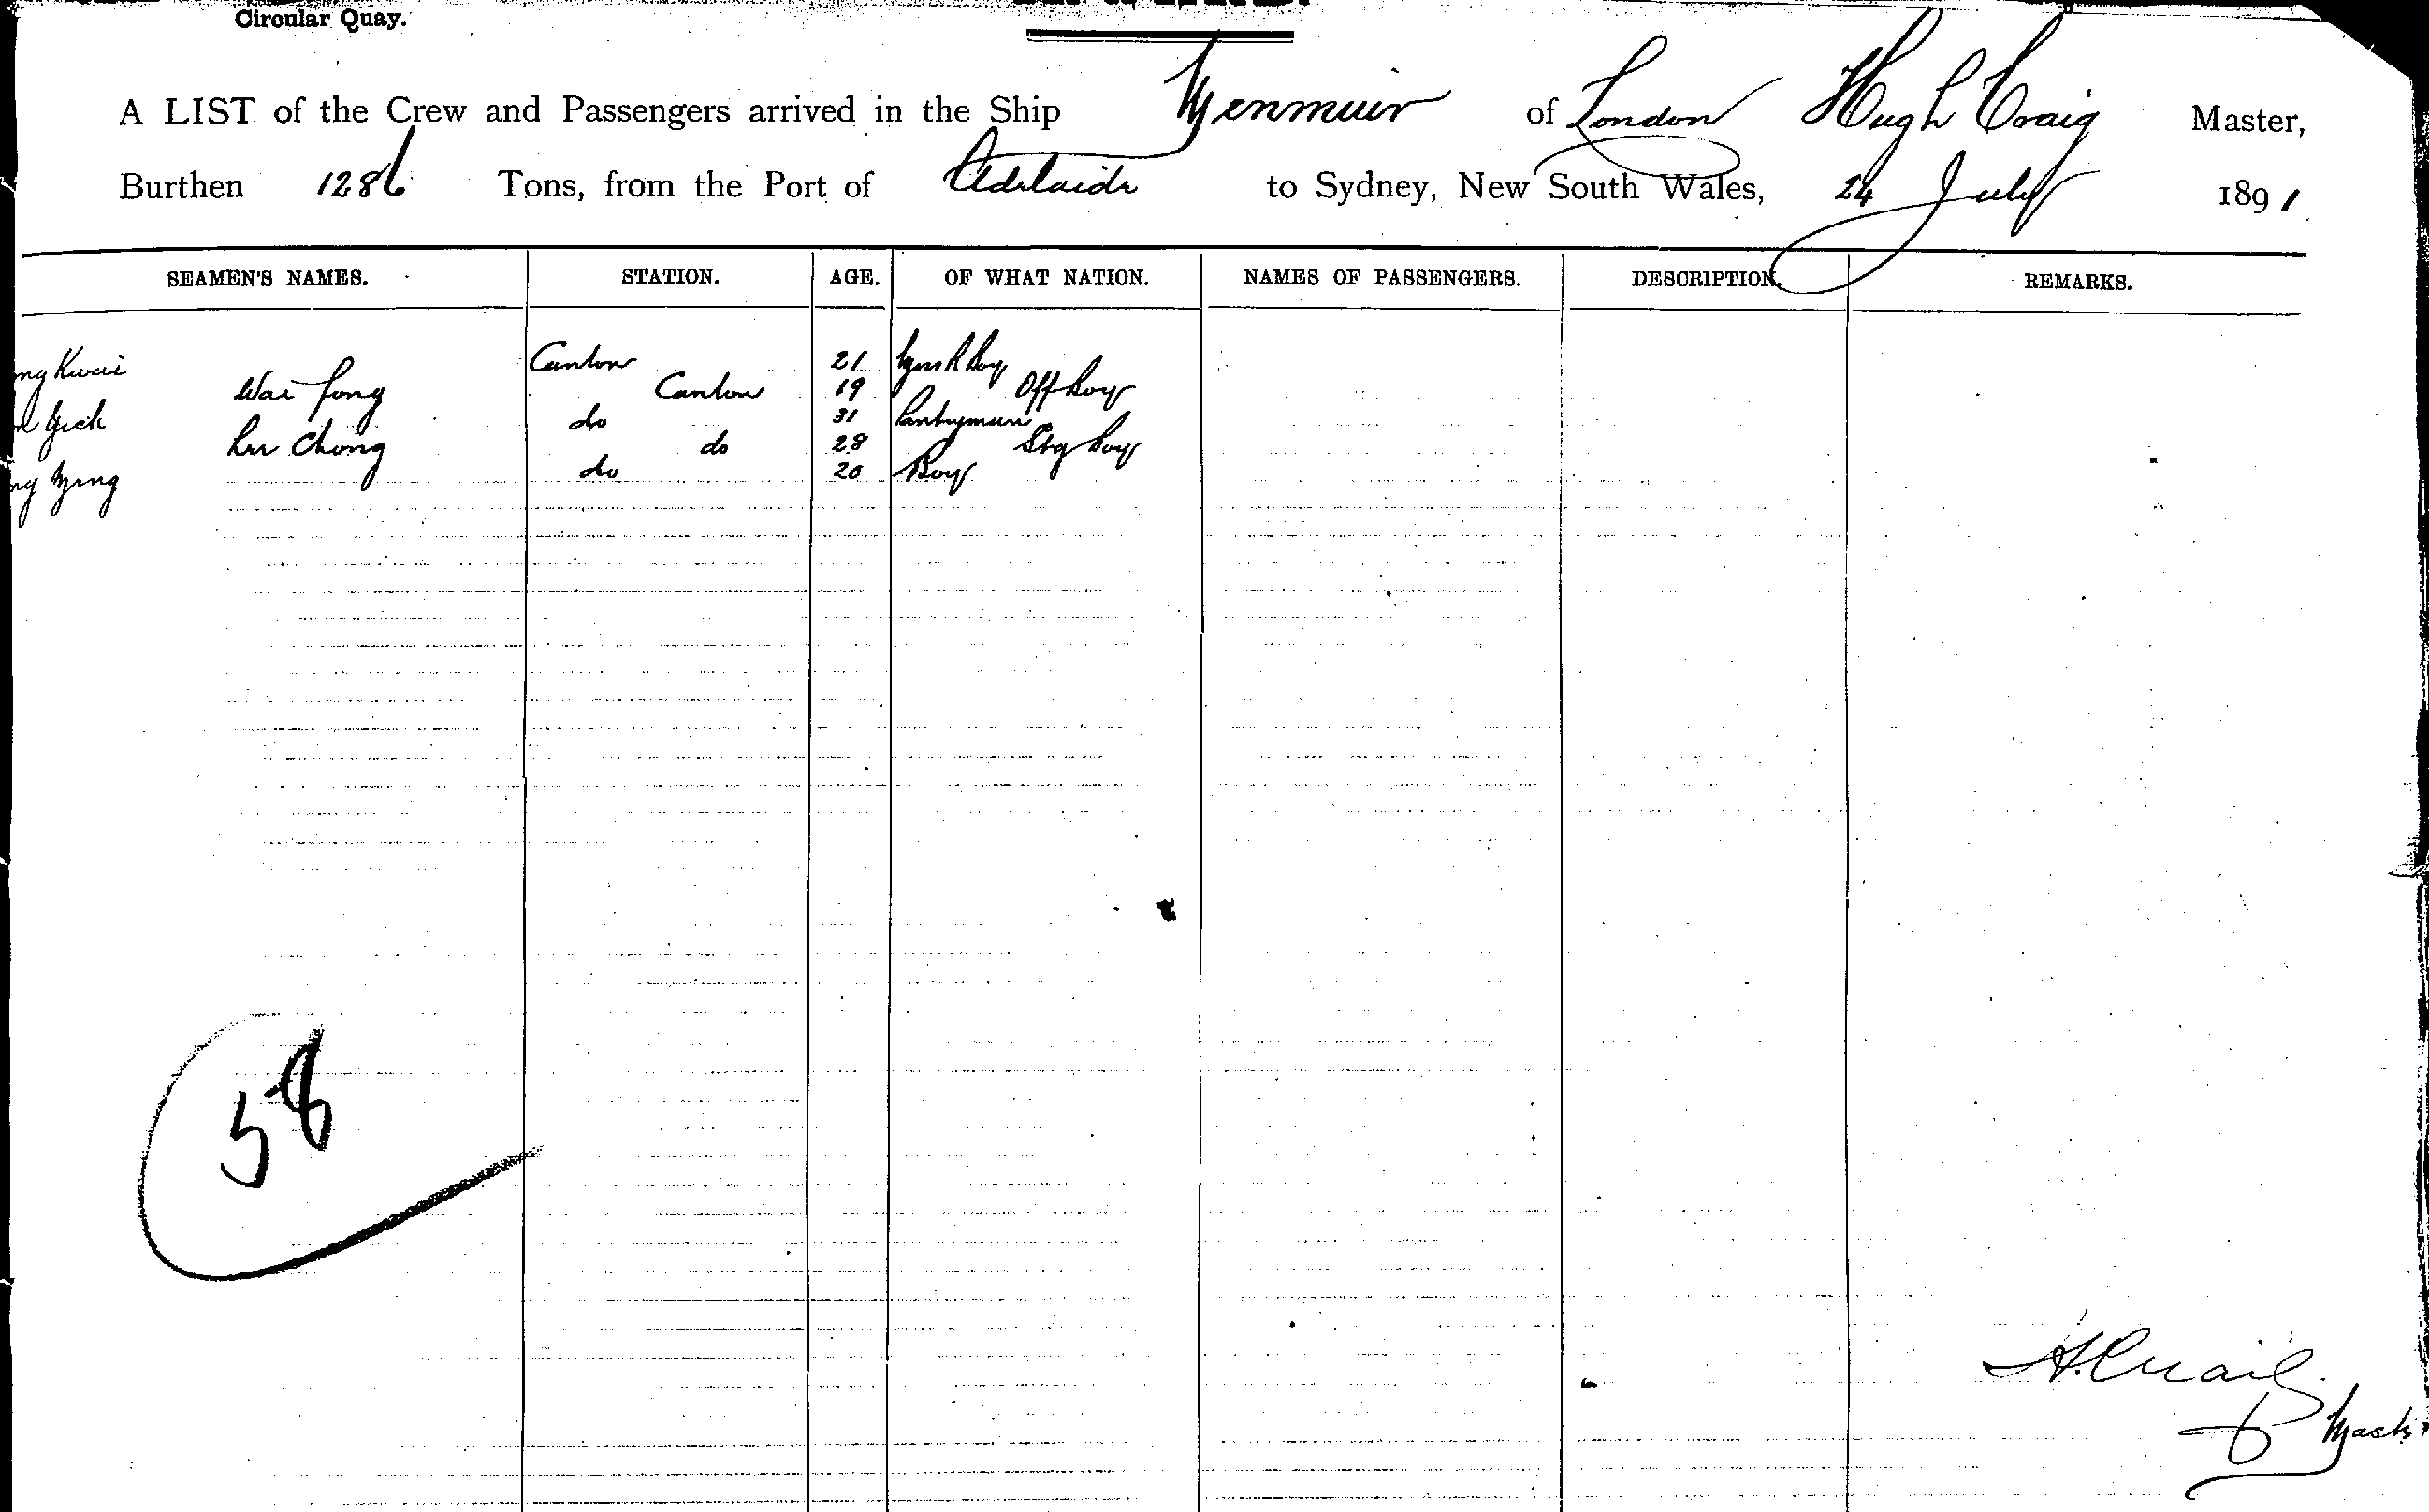 Circular Quay.
A LIST of the Crew and Passengers arrived in the Ship Menmuir of London Hugh Craig Master,
Burthen 1286 Tons, from the Port of Adelaide to Sydney, New South Wales, 24 July 1891
SEAMEN'S NAMES. STATION. AGE. OF WHAT NATION. NAMES OF PASSENGERS. DESCRIPTION. REMARKS.
Kwai Canton 21 Mess R Boy
Wai Fong Canton 19 Off Boy
Yick do 31 Pantryman
Lee Chong do 28 Stg Boy
do 20 Boy
58
H. Craig